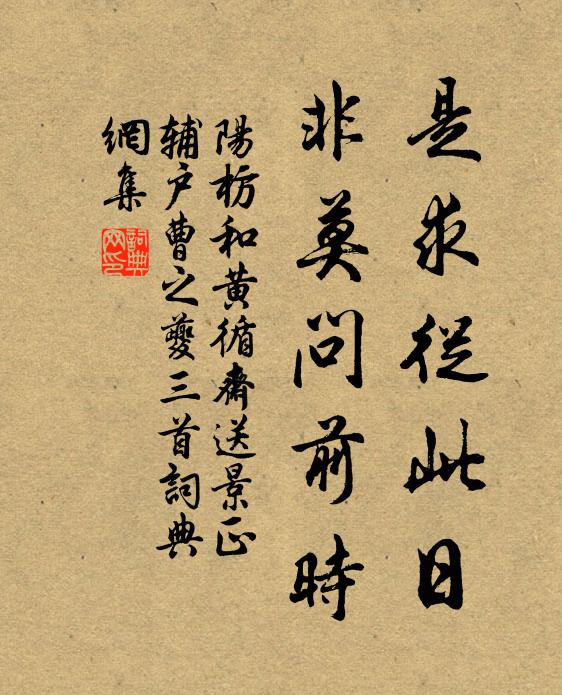 是求從此日
非莫問前時
陽枋和黃循齋送景正
輔戶曹之夔三首詞典
網集
詞典網印